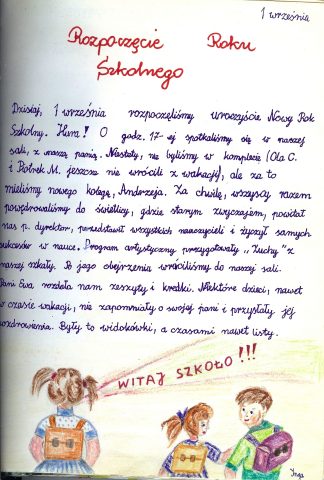 1 września
Rozpoczęcie Roku
Szkolnego
Dzisiaj, 1 września rozpoczęliśmy uroczyście Nowy Rok
Szkolny. Hura! O godz. 17-ej spotkaliśmy się w naszej
sali, z naszą panią. Niestety, nie byliśmy w komplecie (Ola C.
i Piotrek M. jeszcze nie wrócili z wakacji), ale za to
mieliśmy nowego kolegę, Andrzeja. Za chwilę, wszyscy razem
powędrowaliśmy do świetlicy, gdzie starym zwyczajem, powitał
nas p. dyrektor, przedstawił wszystkich nauczycieli i życzył samych
sukcesów w nauce. Program artystyczny przygotowały "Zuchy" z
naszej szkoły. Po jego obejrzeniu wróciliśmy do naszej sali.
Pani Ewa rozdała nam zeszyty i kredki. Niektóre dzieci, nawet
w czasie wakacji, nie zapomniały o swojej pani i przysłały jej
pozdrowienia. Były to widokówki, a czasami nawet listy.
WITAJ SZKOŁO!!!
Inga